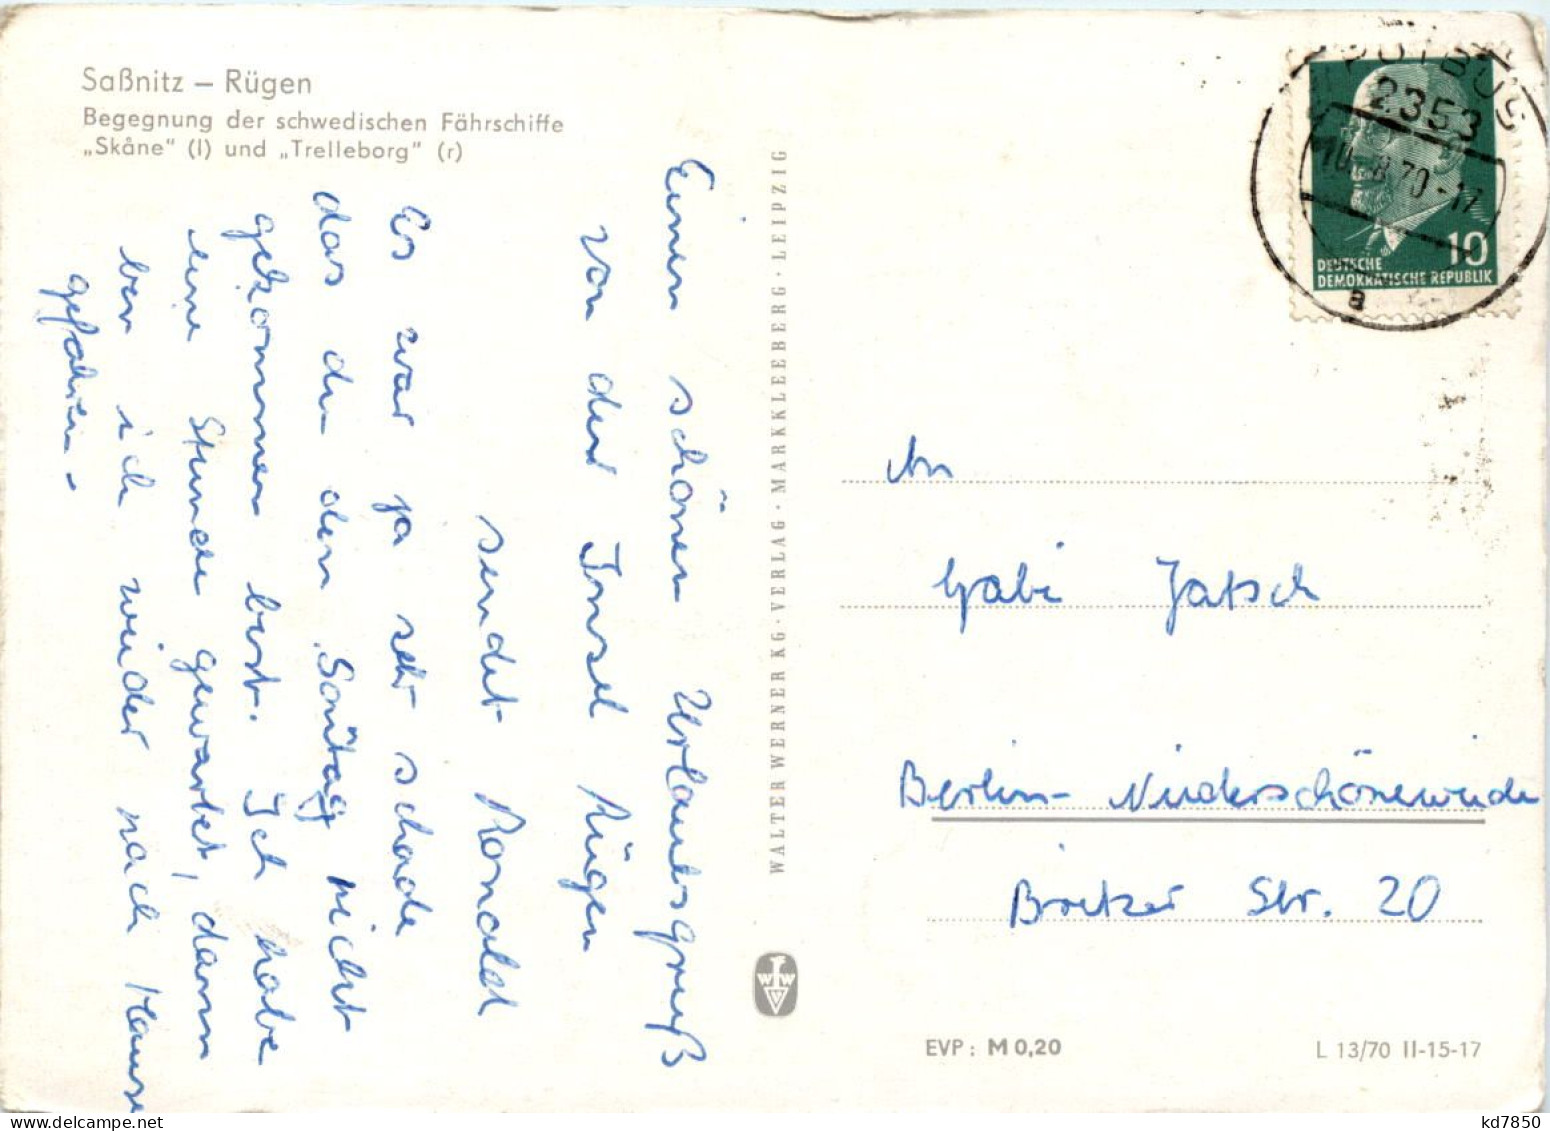 Saßnitz – Rügen
Begegnung der schwedischen Fährschiffe
„Skåne" (l) und „Trelleborg" (r)
Einen schönen Urlaubsgruß
von der Insel Rügen
sendet Ronald
Es war ja sehr schade
das du den Sontag nicht
gekommen bist. Ich habe
eine Stunde gewartet, dann
ben ich wieder nach Hause
gefahren.
WALTER WERNER KG · VERLAG · MARKKLEEBERG · LEIPZIG
WWV
PUTBUS
2353
10.-8.70-17
a
10
DEUTSCHE
DEMOKRATISCHE REPUBLIK
An
Gabi Jatsch
Berlin- Niederschöneweide
Britzer Str. 20
EVP: M 0,20
L 13/70 II-15-17
kd7850